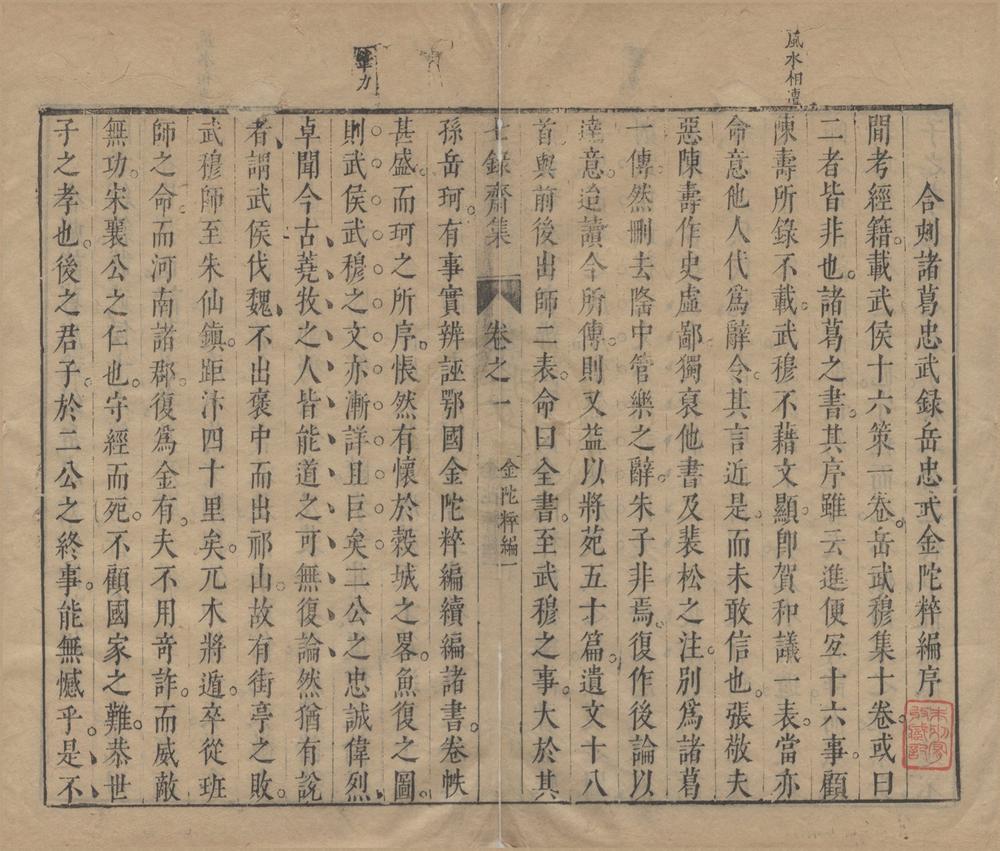 合刺諸葛忠武録岳忠武金陀粹編序
間考經籍載武侯十六策一而卷岳武穆集十卷或曰
二者皆非也諸葛之書其序雖云進便宐十六事顧
陳壽所錄不載武穆不藉文顯卽賀和議一表當亦
命意他人代爲辭令其言近是而未敢信也張敬夫
惡陳壽作史虛鄙獨裒他書及裴松之注別爲諸葛
一傳然刪去隆中管樂之辭朱子非焉復作後論以
達意迨讀今所傳則又益以將苑五十篇遺文十八
首與前後出師二表命曰全書至武穆之事大於其
七錄齋集 卷之一 金陀粹編一
孫岳珂有事實辨誣鄂國金陀粹編續編諸書卷帙
甚盛而珂之所序悵然有懷於榖城之畧魚復之圖
則武侯武穆之文亦漸詳且巨矣二公之忠誠偉烈
卓聞今古蕘牧之人皆能道之可無復論然猶有說
者謂武侯伐魏不出褒中而出祁山故有街亭之敗
武穆師至朱仙鎮距汴四十里矣兀木將遁卒從班
師之命而河南諸郡復爲金有夫不用奇詐而威敵
無功宋襄公之仁也守經而死不顧國家之難恭世
子之孝也後之君子於二公之終事能無憾乎是不
風水相遭
筆力